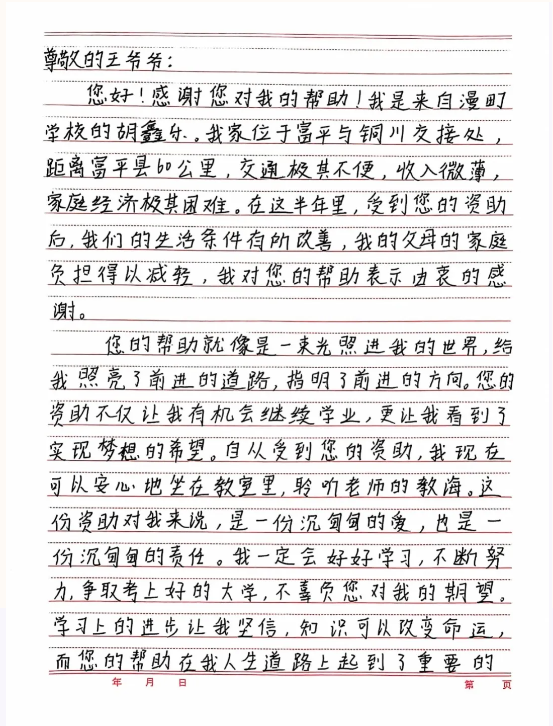 尊敬的王爷爷：
您好！感谢您对我的帮助！我是来自漫町
学校的胡鑫乐。我家位于富平与铜川交接处，
距离富平县60公里，交通极其不便，收入微薄，
家庭经济极其困难。在这半年里，受到您的资助
后，我们的生活条件有所改善，我的父母的家庭
负担得以减轻，我对您的帮助表示由衷的感
谢。
您的帮助就像是一束光照进我的世界，给
我照亮了前进的道路，指明了前进的方向。您的
资助不仅让我有机会继续学业，更让我看到了
实现梦想的希望。自从受到您的资助，我现在
可以安心地坐在教室里，聆听老师的教诲。这
份资助对我来说，是一份沉甸甸的爱，也是一
份沉甸甸的责任。我一定会好好学习，不断努
力，争取考上好的大学，不辜负您对我的期望。
学习上的进步让我坚信，知识可以改变命运，
而您的帮助在我人生道路上起到了重要的
年 月 日 第 页